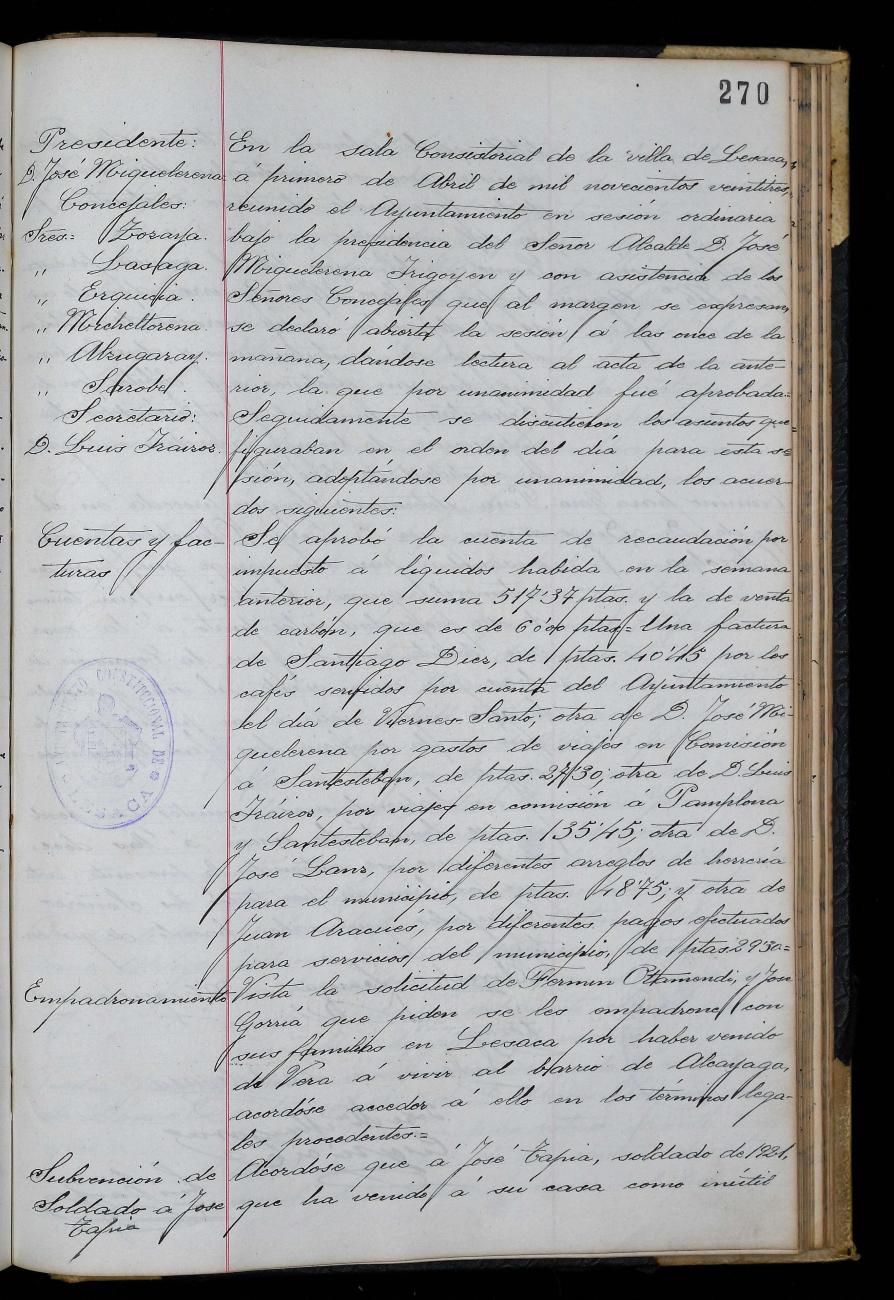 270
Presidente:
D. José Miguelerena
Concejales:
Sres.= Zozaya.
,, Lasaga.
,, Erquicia.
,, Mrcheltorena.
,, Alzugaray.
,, Sarobe.
Secretario:
D. Luis Iráizoz.
En la sala Consistorial de la villa de Lesaca,
á primero de Abril de mil novecientos veintitres,
reunido el Ayuntamiento en sesión ordinaria
bajo la presidencia del Señor Alcalde D. José
Miguelerena Irigoyen y con asistencia de los
Señores Concejales que al margen se expresan,
se declaró abierta la sesión á las once de la
mañana, dandose lectura al acta de la ante-
rior, la que por unanimidad fué aprobada.=
Seguidamente se discutieron los asuntos que
figuraban en el orden del día para esta se
sión, adoptándose por unanimidad, los acuer-
dos siguientes:
Cuentas y fac-
turas
Se aprobó la cuenta de recaudación por
impuesto á líquidos habida en la semana
anterior, que suma 517'37 ptas. y la de venta
de carbón, que es de ptas= Una factura
de Santiago Diez, de ptas. 40'45 por los
cafés servidos por cuenta del Ayuntamiento
el día de Viernes Santo; otra de D. José Mi-
guelerena por gastos de viajes en Comisión
á Santesteban, de ptas. 27'30; otra de D. Luis
Iráizoz, por viajes en comisión á Pamplona
y Santesteban, de ptas. 135'45; otra de D.
José Lanz, por diferentes arreglos de herrería
para el municipio, de ptas. 48'75; y otra de
Juan Aracues, por diferentes pagos efectuados
para servicios del municipio, de ptas. 29'50=
Empadronamiento
Vista la solicitud de Fermin Ottamendi, y Jose
Gorría que piden se les empadrone con
sus familias en Lesaca por haber venido
de Vera á vivir al barrio de Alcayaga,
acordóse acceder á ello en los términos lega-
les procedentes.=
Subvención de
Soldado á Jose
Tapia
Acordóse que á José Tapia, soldado de 1921,
que ha venido á su casa como inútil
AYUNTAMIENTO CONSTITUCIONAL DE
LESACA